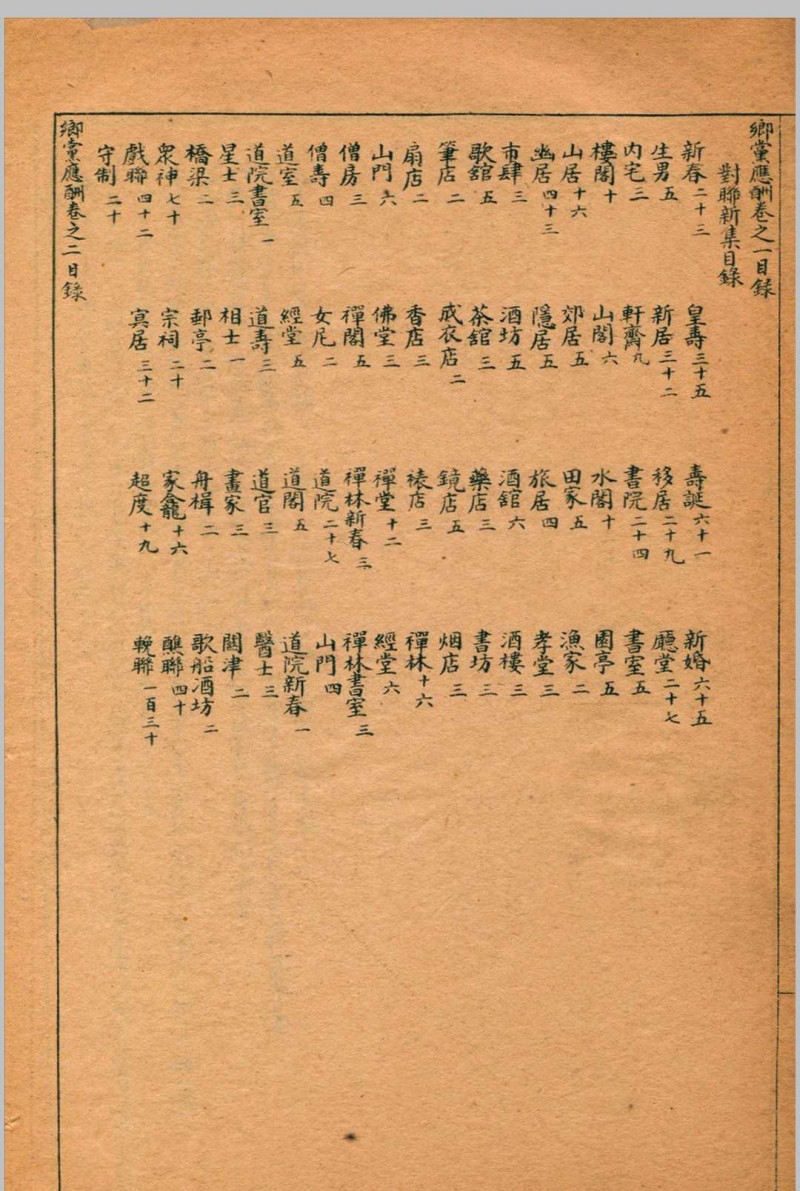 鄉黨應酬卷之一目錄
對聯新集目錄
新春二十三 皇壽三十五 壽誕六十一 新婚六十五
生男五 新居三十二 移居二十九 廳堂二十七
內宅三 軒齋九 書院二十四 書室五
樓閣十 山閣六 水閣十 園亭五
山居十六 郊居五 田家五 漁家二
幽居四十三 隱居五 旅居四 孝堂三
市肆三 酒坊五 酒舘六 酒樓三
歌舘五 茶舘三 藥店三 書坊三
筆店二 成衣店二 鏡店五 烟店三
扇店二 香店三 裱店三 禪林十六
山門六 佛堂三 禪堂十二 經堂六
僧房三 禪閣五 禪林新春三 禪林書室三
僧壽四 女尼二 道院二十七 山門四
道室五 經堂五 道閣五 道院新春一
道院書室一 道壽三 道官三 醫士三
星士三 相士一 畫家三 關津二
橋梁二 郵亭二 舟楫二 歌船酒坊二
眾神七十 宗祠二十 家龕十六 醮聯四十
戲聯四十二 冥居三十二 超度十九 輓聯一百三十
守制二十
鄉黨應酬卷之二目錄